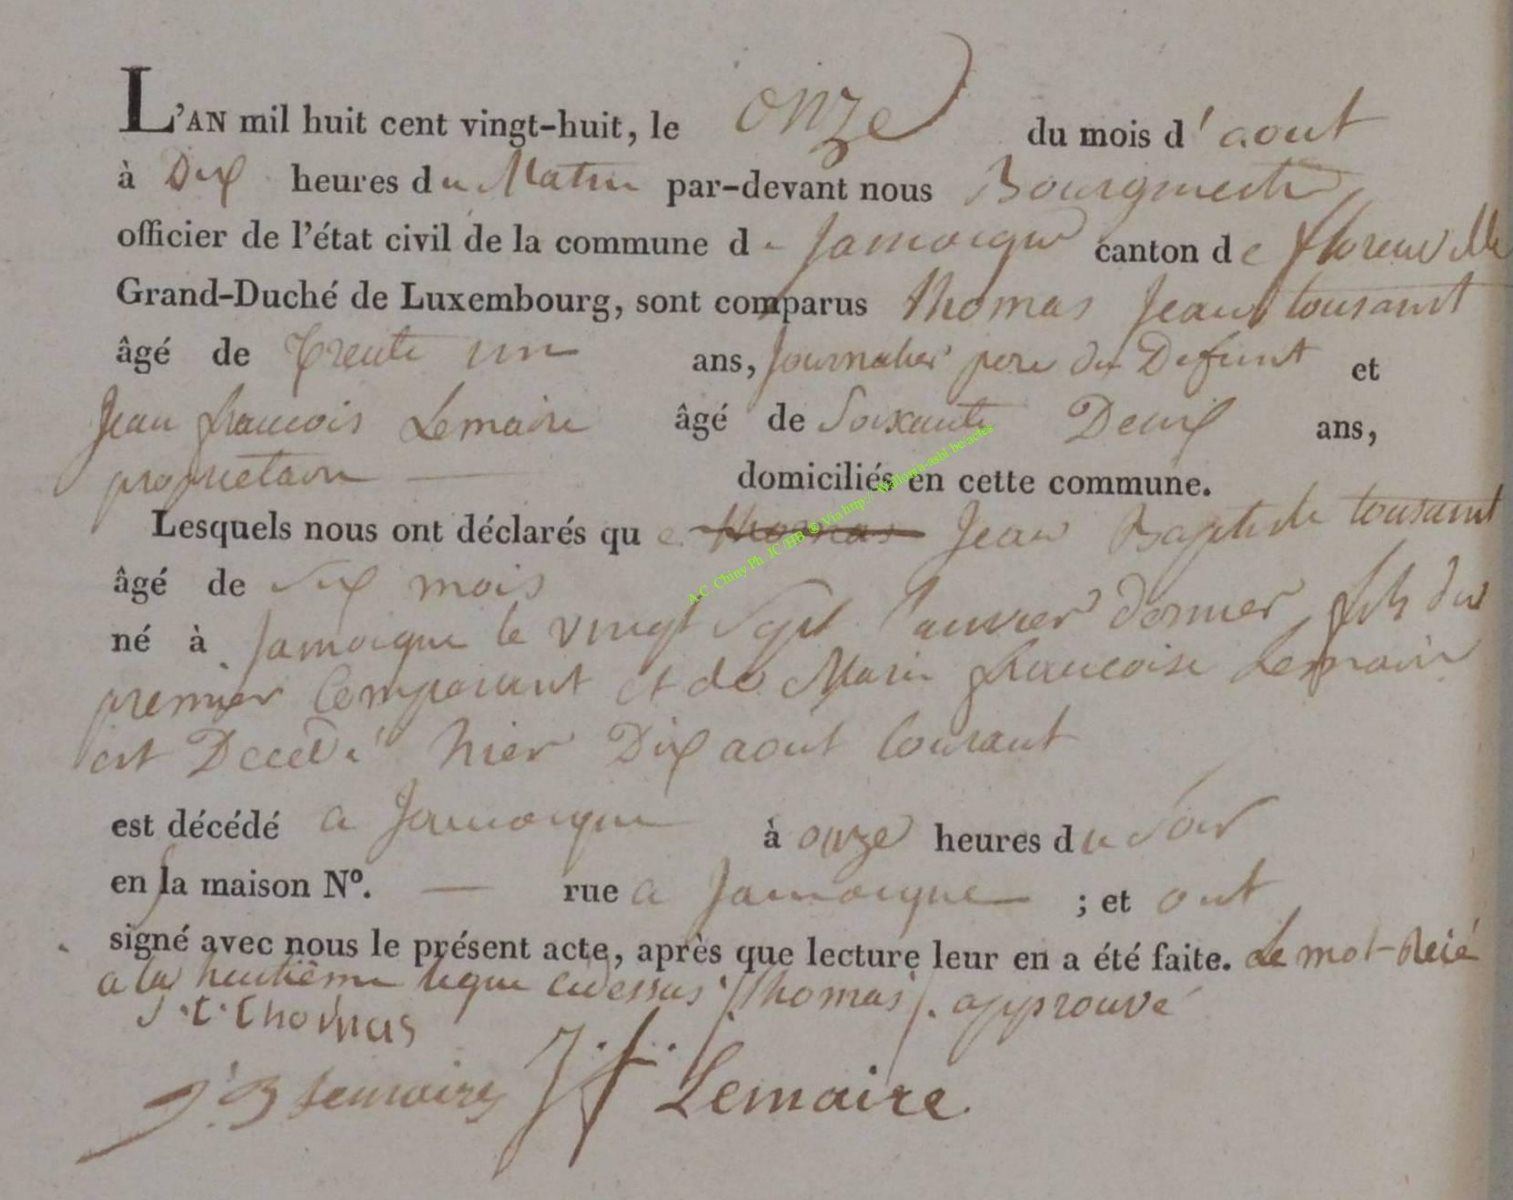 L'AN mil huit cent vingt-huit, le onze du mois d'aout
à Dix heures du Matin par-devant nous Bourgmestre
officier de l'état civil de la commune de Jamoigne canton de florenville
Grand-Duché de Luxembourg, sont comparus thomas Jean tousaint
âgé de trente un ans, Journalier pere du Defunt et
Jean francois Lemaire âgé de Soixante Deux ans,
proprietaire — domiciliés en cette commune.
Lesquels nous ont déclarés que thomas Jean Baptiste tousaint
âgé de Six mois
né à Jamoigne le vingt Sept Janvier dernier, fils du
premier Comparant et de Marie francoise Lemaire
est Decedé hier Dix aout Courant
est décédé a Jamoigne à onze heures du Soir
en sa maison N°. — rue a Jamoigne ; et ont
signé avec nous le présent acte, après que lecture leur en a été faite. Le mot Reié
a la huitième ligne cidessus /. thomas /. approuvé
J.t. thomas
J.B Lemaire J.f. Lemaire.
A.C. Chiny Ph. JC /HB ® Via http:// Wallonia-asbl.be/actes